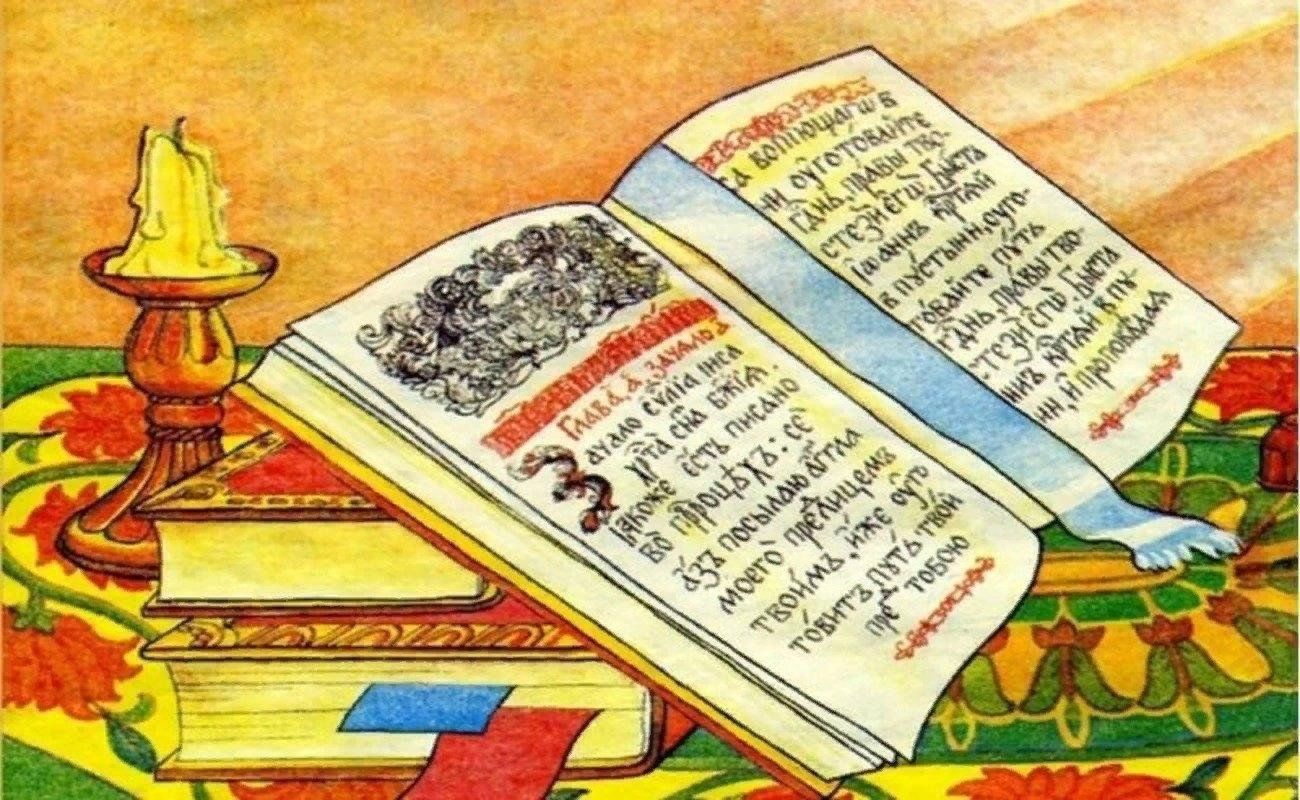 Глава, а҃ зачало а҃
Зачало є҆ѵⷢ҇лїа іиса
хрⷭ҇та̀ сн҃а бж҃їѧ.
Ꙗкоже є҆сть писано
во прⷪ҇роцѣхъ: се̑
а҆зъ посылаю а҆гг҃ла
моегѡ̀ преⷣ лицемъ
твои́мъ, и҆́же оу҆гото
то́витъ пꙋ́ть тво́й
преⷣ тобою
вопїющагѡ в
оу҆гото́вайте
гдⷭ҇нь, пра́вы тво-
стезѝ є҆гѡ̀. Бы́сть
їѡаннъ крⷭ҇тѧй
в пꙋсты́ни, оу҆го-
това́йте пꙋ́ть
гдⷭ҇нь, пра́вы тво-
стезѝ є҆гѡ̀. Бы́ста
крⷭ҇тай в пꙋ-
и҆ проповѣдаѧ